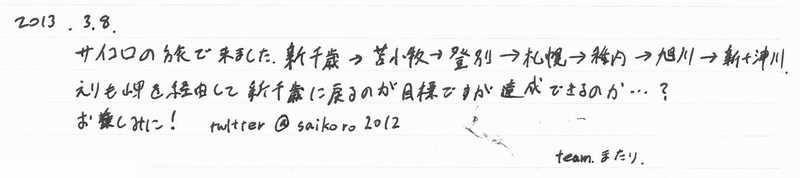 2013.3.8.
サイコロの旅で来ました。新千歳→苫小牧→登別→札幌→稚内→旭川→新十津川.
えりも岬を経由して新千歳に戻るのが目標ですが達成できるのか…?
お楽しみに! twitter @saikoro2012
team.またり.